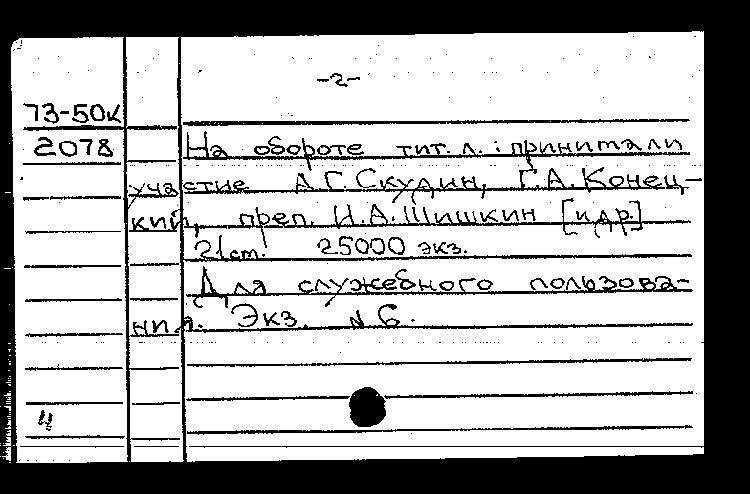 -2-
73-50к
2078
На обороте тит. л.: принимали
участие А.Г. Скудин, Г.А. Конец-
кий, преп. И.А. Шишкин [и др.]
21 ст. 25000 экз.
Для служебного пользова-
ния. Экз. N 6.
4